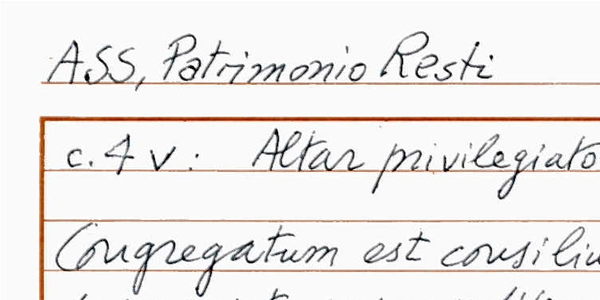 ASS, Patrimonio Resti
c. 4 v: Altar privilegiato
Congregatum est consiliu